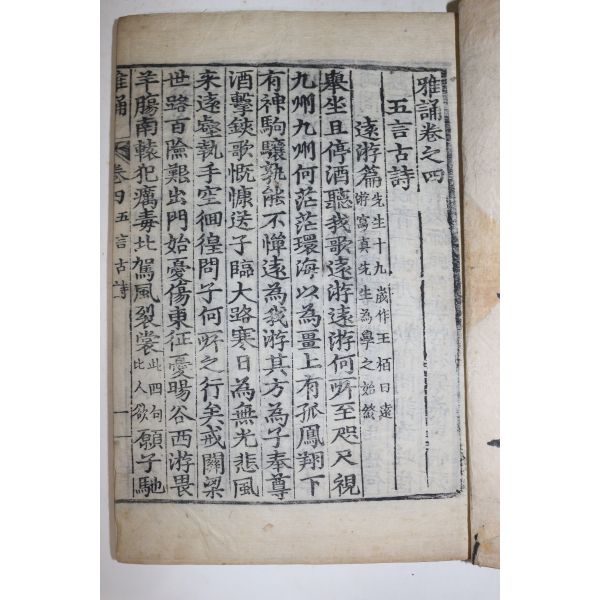 雅誦卷之四
五言古詩
遠游篇 先生十九歲作王栢曰遠
游寓真先生為學之始發
舉坐且停酒聽我歌遠游遠游何所至咫尺視
九州九州何茫茫環海以為畺上有孤鳳翔下
有神駒驤孰能不憚遠為我游其方為子奉尊
酒擊鋏歌慨慷送子臨大路寒日為無光悲風
来遠壑執手空徊徨問子何所之行矣戒關梁
世路百險艱出門始憂傷東征憂暘谷西游畏
羊腸南轅犯癘毒北駕風裂裳 此四句
比人欲 願子馳
雅誦 卷四 五言古詩 一